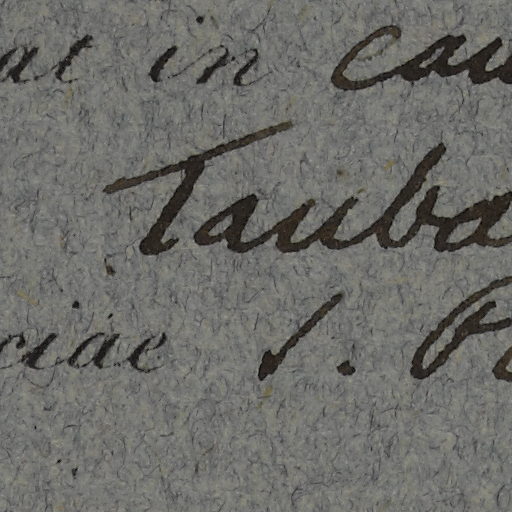 at in cau
Tauba
ciae S. P